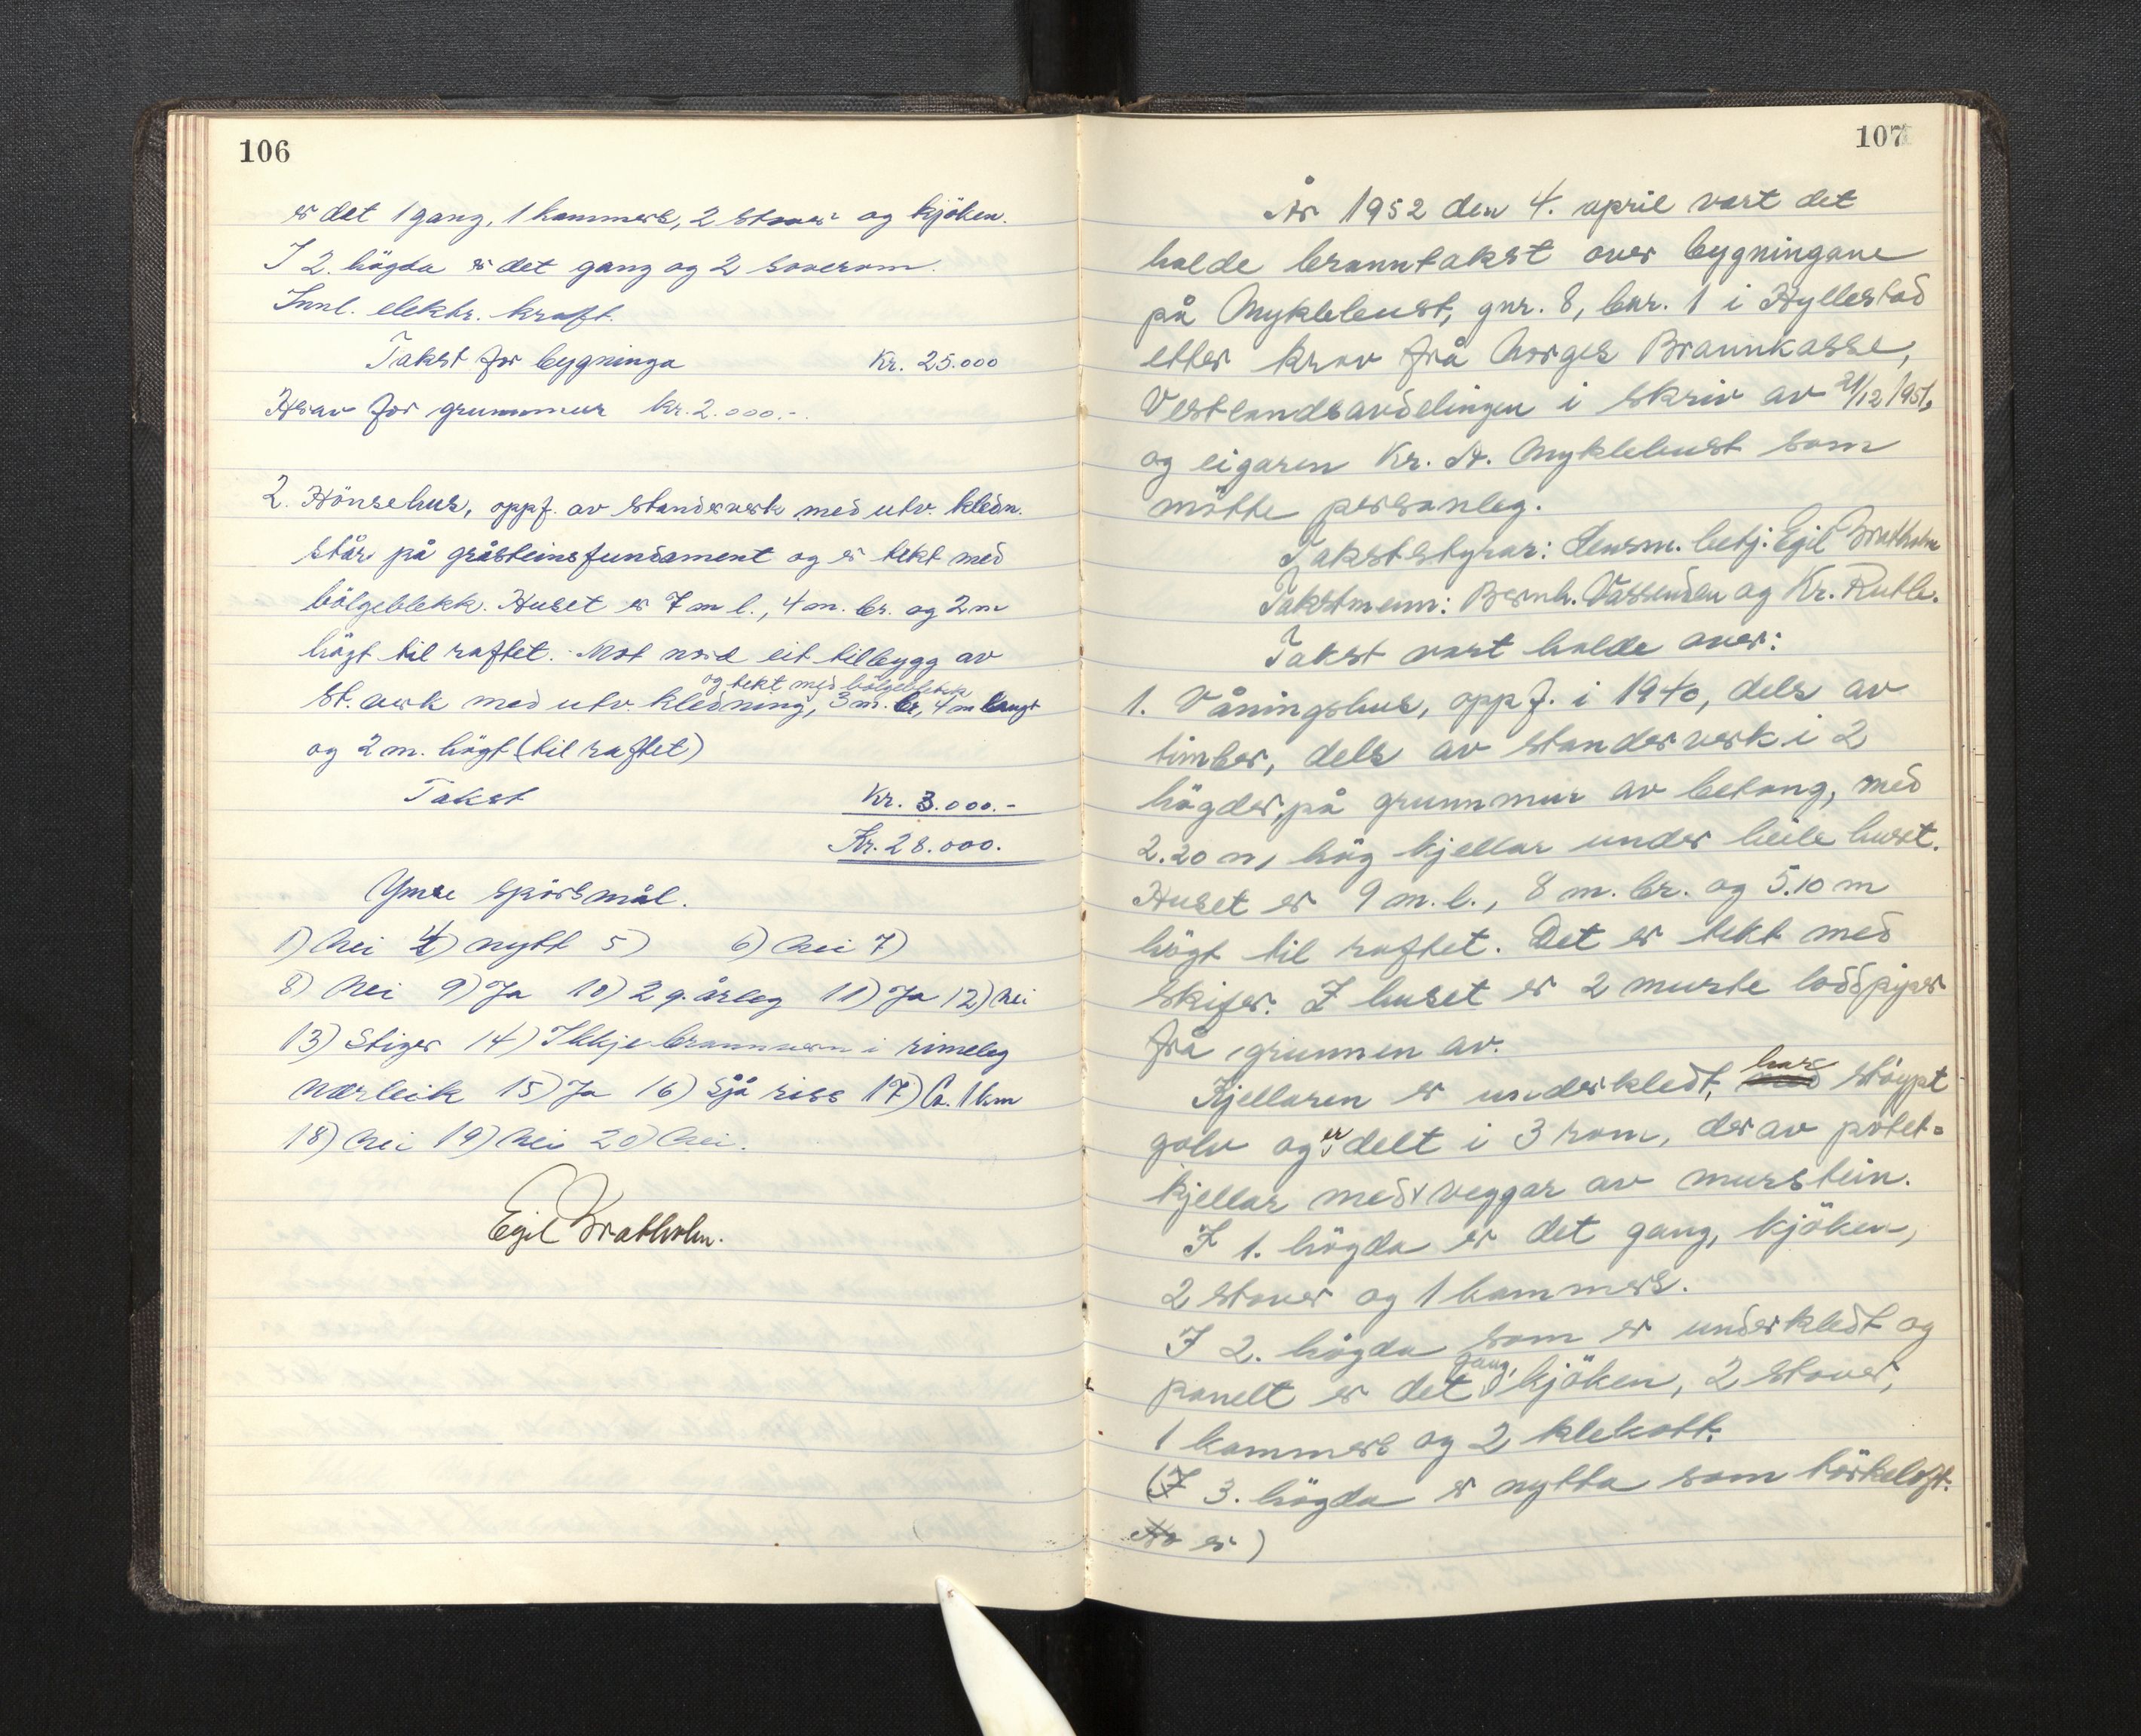 106
er det 1 gang, 1 kammers, 2 stover og kjöken.
I 2. högda er det gang og 2 soverom.
Innl. elektr. kraft.
Takst for bygninga Kr. 25.000
Herav for grunnmur kr. 2.000.-
2. Hönsehus, oppf. av standerverk med utv. kledn.
står på gråsteinsfundament og er tekt med
bölgeblekk. Huset er 7 m l., 4 m. br. og 2 m
högt til raftet. Mot nord eit tilbygg av
og tekt med bölgeblekk
st.verk med utv. kledning, 3 m. br, 4 m langt
og 2 m. högt (til raftet)
Takst Kr. 3.000.-
Kr. 28.000.
Ymse spörsmål.
1) Nei 4) nytt 5) 6) Nei 7)
8) Nei 9) Ja 10) 2 g. årleg 11) Ja 12) Nei
13) Stiger 14) Ikkje brannvern i rimeleg
nærleik 15) Ja 16) Sjå riss 17) Ca. 1 km
18) Nei 19) Nei 20) Nei.
Egil Bratholm.
107
År 1952 den 4. april vart det
halde branntakst over bygningane
på Myklebust, gnr. 8, bnr. 1 i Hyllestad
etter krav frå Norges Brannkasse,
Vestlandsavdelingen i skriv av 21/12 1951,
og eigaren Kr. A. Myklebust som
mötte personleg.
Takststyrar: Lensm. betj: Egil Bratholm
Takstmenn: Bernh. Vassenden og Kr. Rutle.
Takst vart halde over:
1. Våningshus, oppf. i 1940, dels av
timber, dels av standerverk i 2
högder, på grunnmur av betong, med
2.20 m, hög kjellar under heile huset.
Huset er 9 m. l., 8 m. br. og 5.10 m
högt til raftet. Det er tekt med
skifer. I huset er 2 murte loddpiper
frå grunnen av.
Kjellaren er underkledt, har stöypt
golv og er delt i 3 rom, derav potet-
kjellar med veggar av murstein.
I 1. högda er det gang, kjöken,
2 stover og 1 kammers.
I 2. högda som er underkledt og
panelt er det gang, kjöken, 2 stover,
1 kammers og 2 klekott.
(I 3. högda er nytta som törkeloft.
No er)